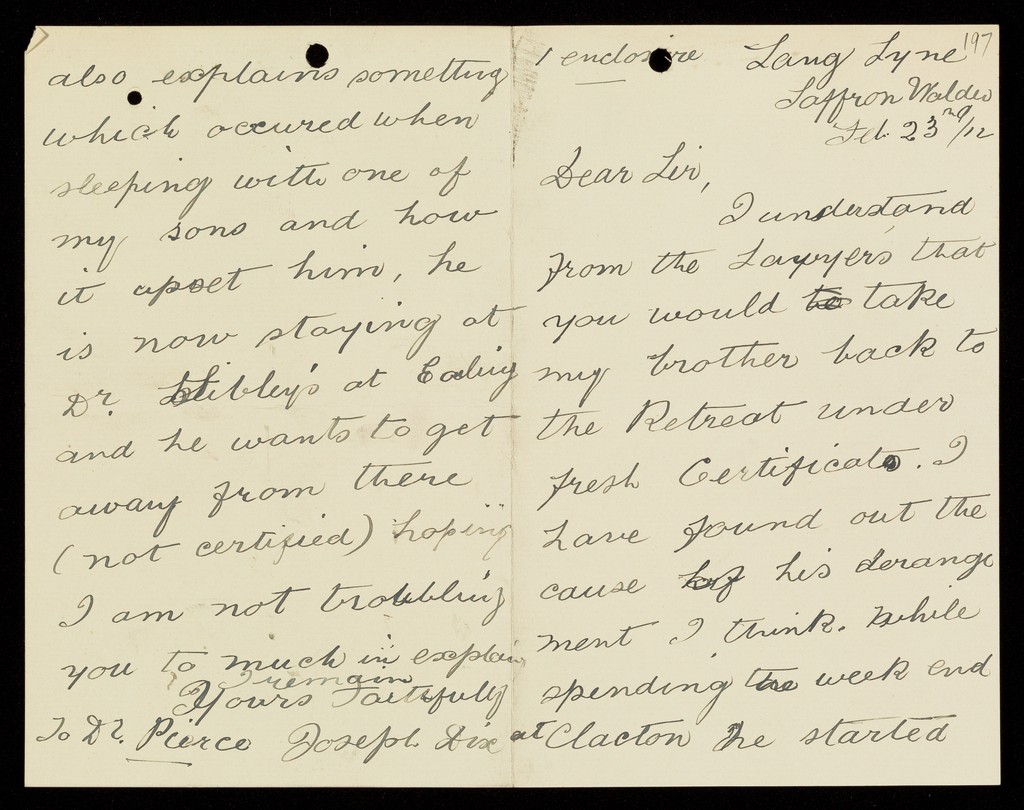 197
1 enclosire Lang Lyne
Saffron Walden
Feb. 23rd/12
Dear Sir,
I understand
from the Lawyers that
you would to take
my brother back to
the Retreat under
fresh Certificate. I
have found out the
cause of his derange
ment I think. While
spending the week end
at Clacton he started
also explains something
which occured when
sleeping with one of
my sons and how
it apset him, he
is now staying at
Dr. at Ealing
and he wants to get
away from there
(not certified) hoping
I am not troubling
you to much in explain
I remain
Yours Faithfully
To Dr. Pierce Joseph Dix